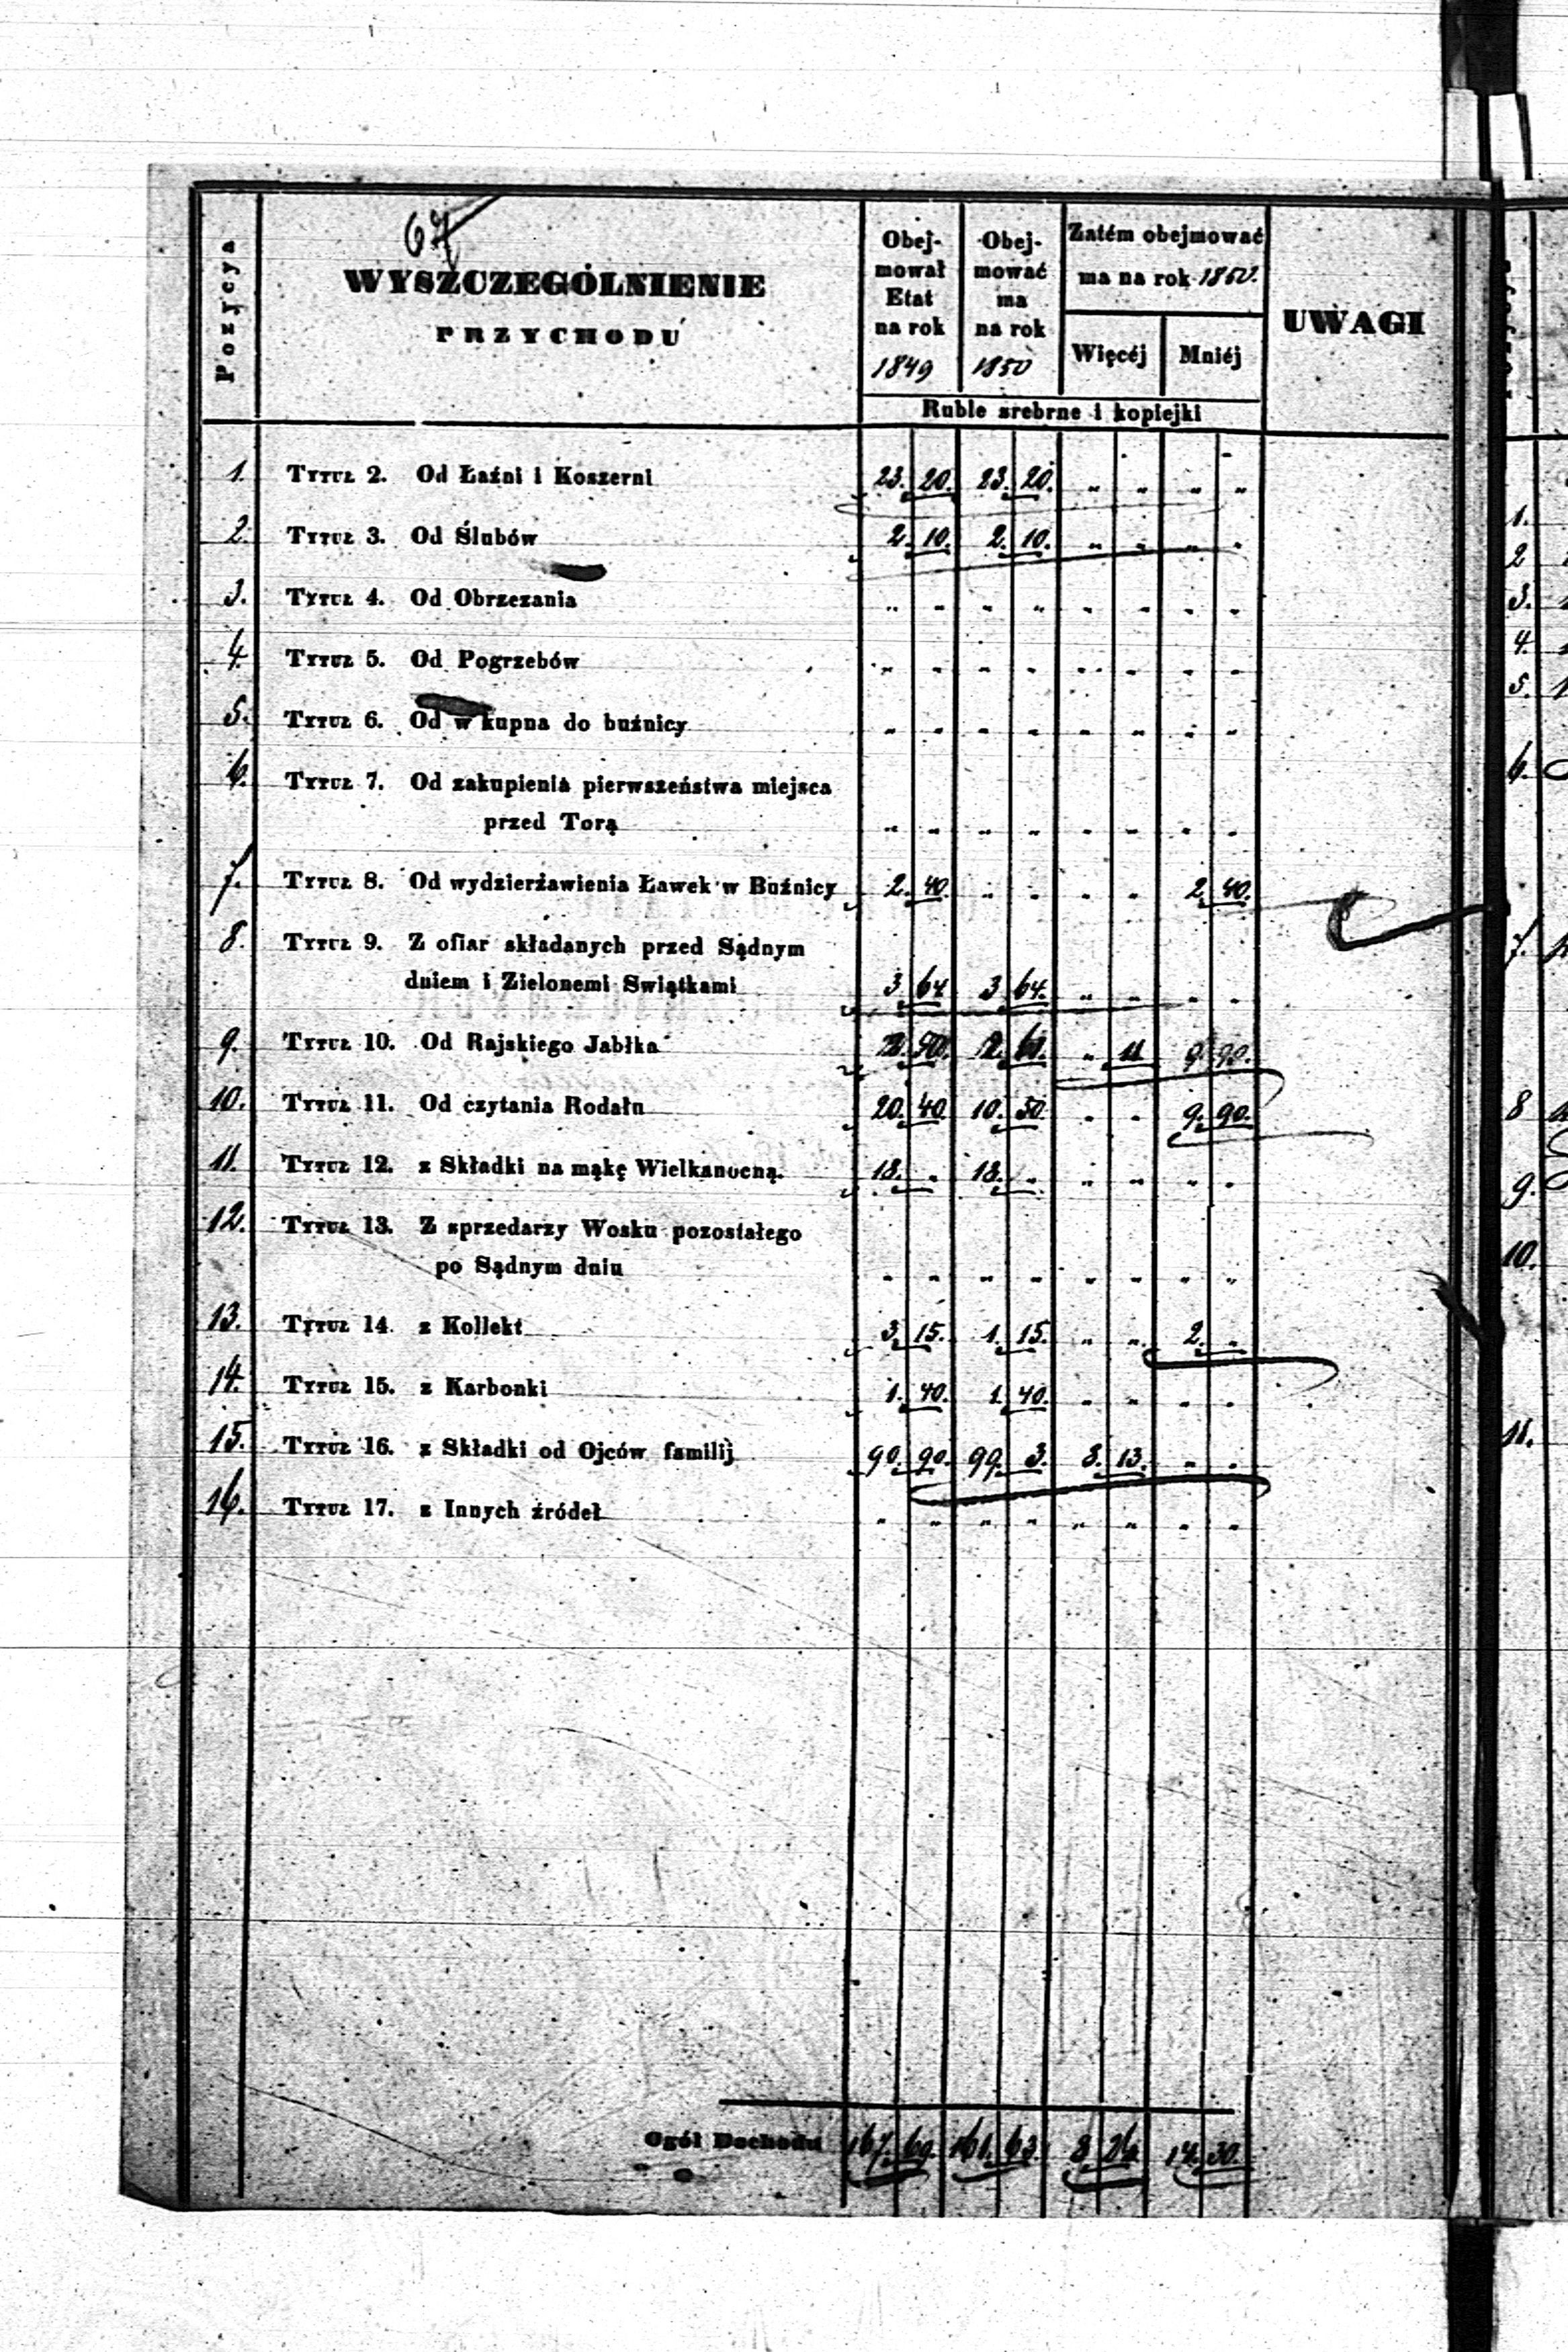 67
Pozycya
WYSZCZEGÓLNIENIE
PRZYCHODU
Obej-
mował
Etat
na rok
1849
Obej-
mować
ma
na rok
1850
Zatém obejmować
ma na rok 1850.
Więcéj Mniéj
UWAGI
Ruble srebrne i kopiejki
1. Tytuł 2. Od Łaźni i Koszerni 23. 20. 23. 20. „ „ „ „
2. Tytuł 3. Od Ślubów 2. 10. 2. 10. „ „ „ „
3. Tytuł 4. Od Obrzezania „ „ „ „ „ „ „ „
4. Tytuł 5. Od Pogrzebów „ „ „ „ „ „ „ „
5. Tytuł 6. Od w kupna do buźnicy „ „ „ „ „ „ „ „
6. Tytuł 7. Od zakupienia pierwszeństwa miejsca
przed Torą „ „ „ „ „ „ „ „
7. Tytuł 8. Od wydzierżawienia Ławek w Buźnicy 2. 40. „ „ „ „ 2. 40.
8. Tytuł 9. Z ofiar składanych przed Sądnym
dniem i Zielonemi Swiątkami 3. 64 3 64. „ „ „ „
9. Tytuł 10. Od Rajskiego Jabłka 2. 50. 2. 61. „ 11 9 90.
10. Tytuł 11. Od czytania Rodału 20. 40 10. 50. „ „ 9. 90.
11. Tytuł 12. z Składki na mąkę Wielkanocną. 18. „ 18. „ „ „ „ „
12. Tytuł 13. Z sprzedarzy Wosku pozostałego
po Sądnym dniu „ „ „ „ „ „ „ „
13. Tytuł 14. z Kollekt 3. 15. 1. 15. „ „ 2. „
14. Tytuł 15. z Karbonki 1. 40. 1. 40. „ „ „ „
15. Tytuł 16. z Składki od Ojców familij 90. 90. 99. 3. 8. 13. „ „
16. Tytuł 17. z Innych źródeł „ „ „ „ „ „ „ „
Ogół Dochodu 167. 69. 161. 63. 8. 24 14. 30.
1.
2
3.
4.
5.
6.
7.
8
9.
10.
11.